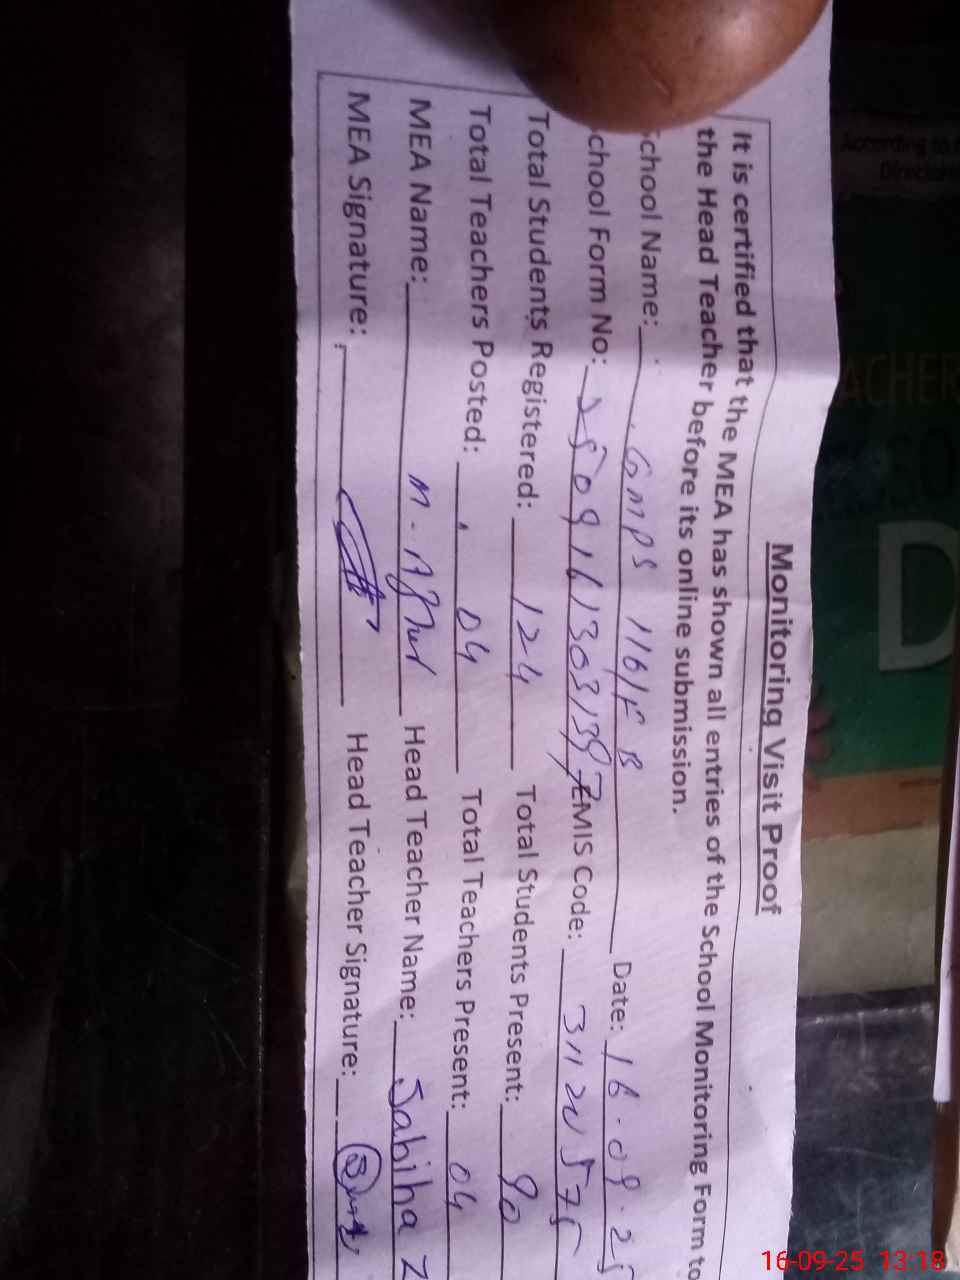 Monitoring Visit Proof
It is certified that the MEA has shown all entries of the School Monitoring Form to
the Head Teacher before its online submission.
School Name: GMPS 116/EB Date: 16.09.25
chool Form No: 25091613031397 EMIS Code:
Total Students Registered: 124 Total Students Present: 90
Total Teachers Posted: 04 Total Teachers Present: 04
MEA Name: M. Head Teacher Name: Sabiha Z
MEA Signature: Head Teacher Signature:
According to
ACHER
D
16-09-25 13:18